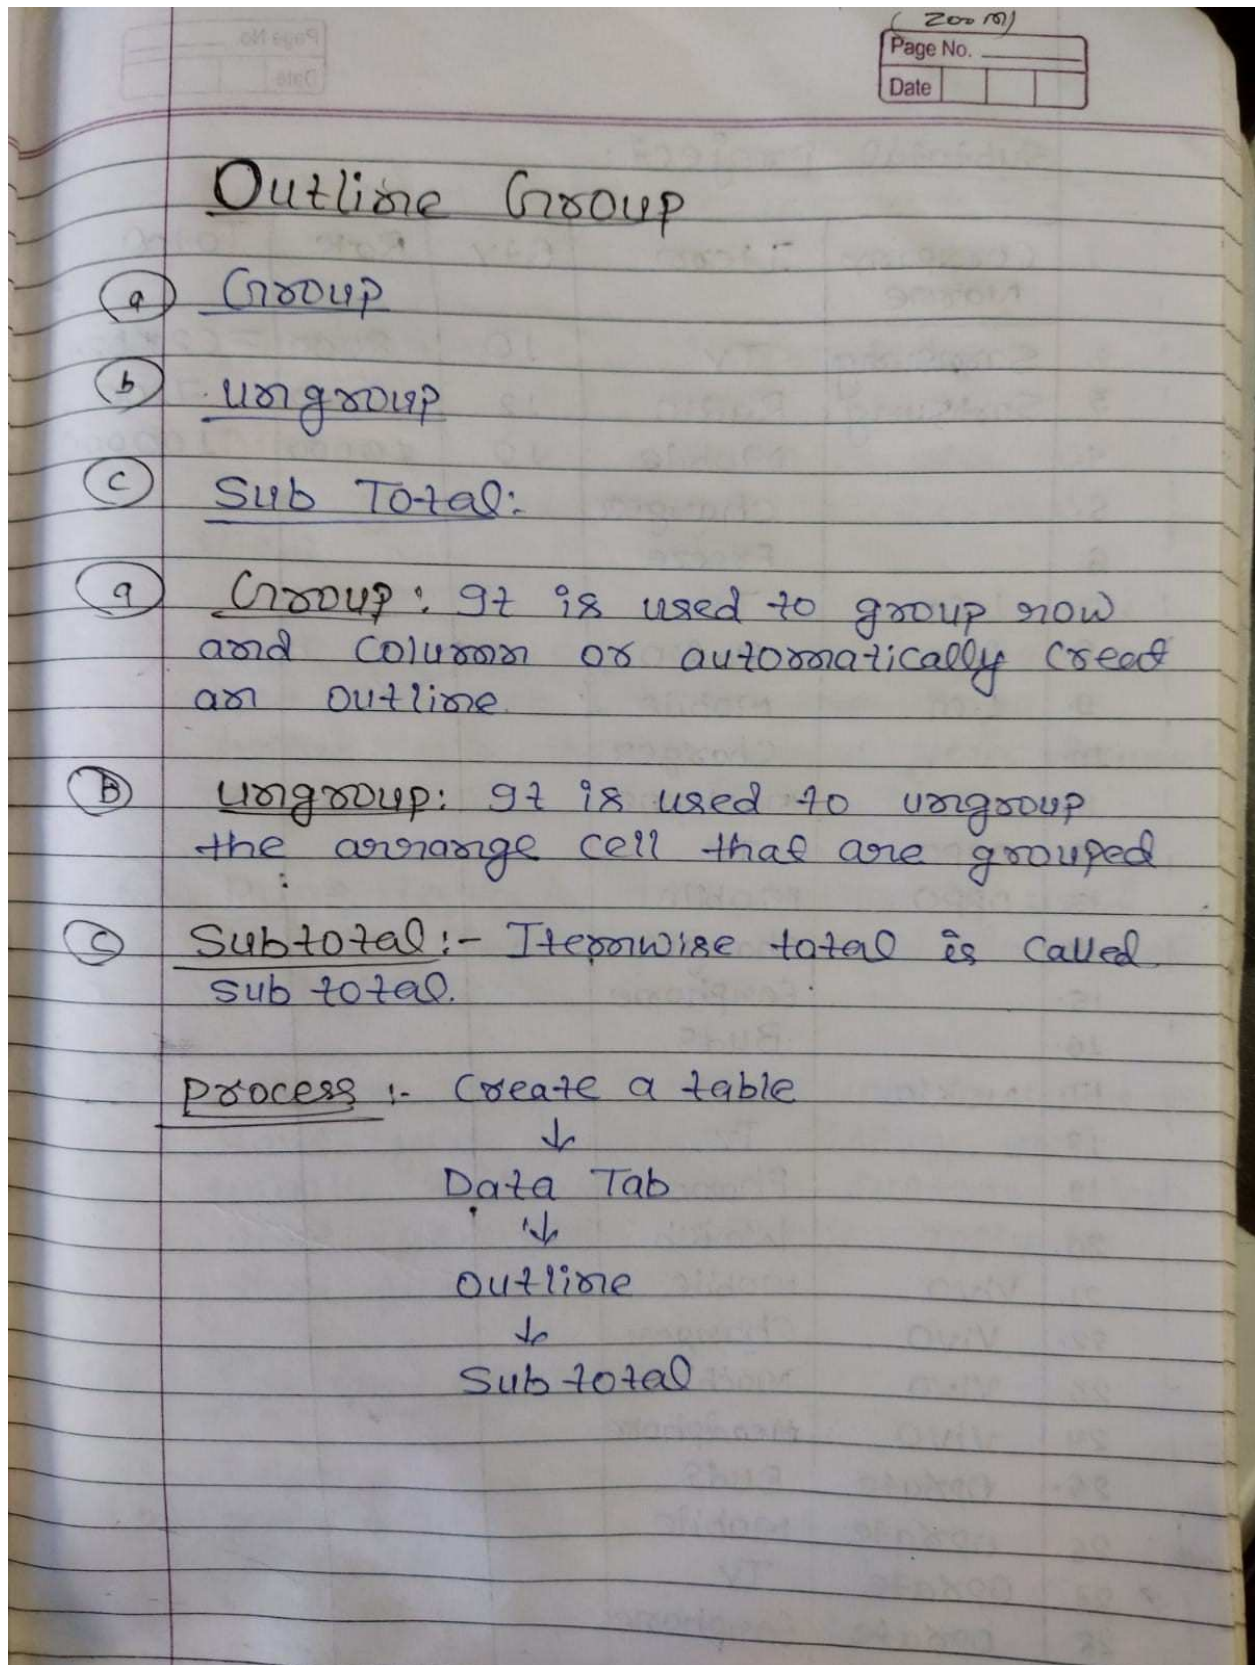 (ZOOM)
Page No.
Date
Outline Group
a Group
b ungroup
c Sub Total:
a Group: It is used to group row
and column or automatically creat
an outline.
B ungroup: It is used to ungroup
the arrange cell that are grouped
C Subtotal:- Itemwise total is called
sub total.
process :- Create a table
↓
Data Tab
↓
outline
↓
Sub total